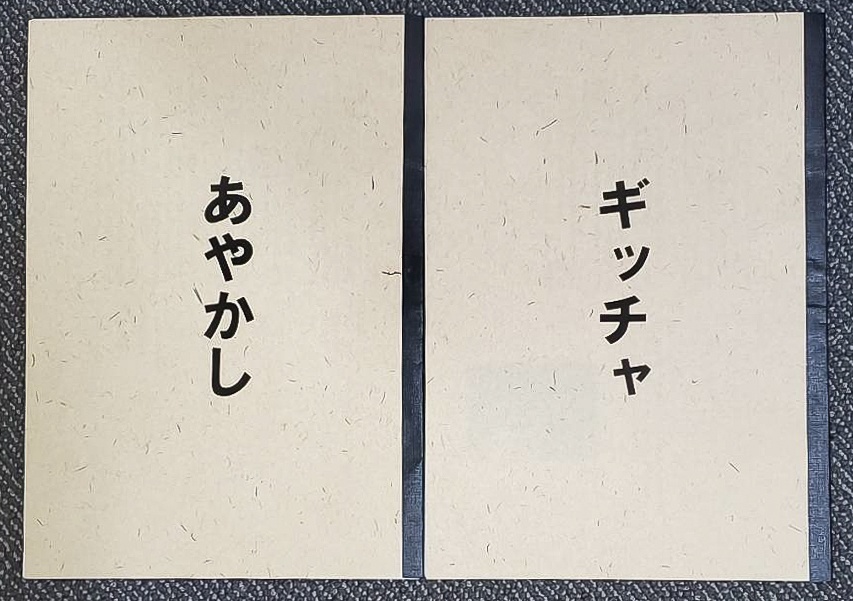 ギッチャ
あやかし